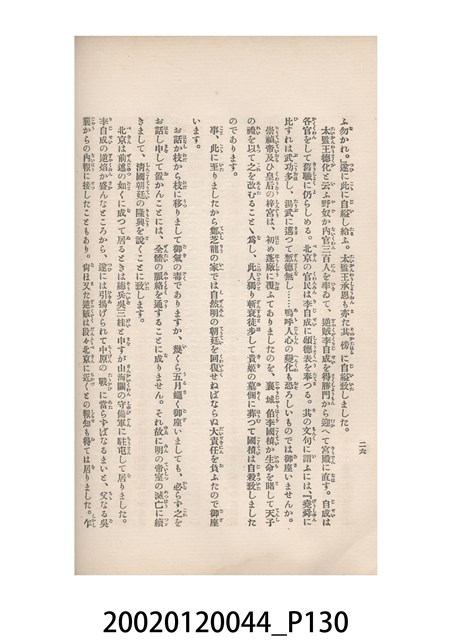 二六
ふ勿かれ。』遂に此に自縊し給ふ。太監王承恩も亦た其傍に自縊致しました。
太監王德化と云ふ野奴が內官三百人を率ゐて、逆賊李自成を得勝門から迎へて宮殿に直す。自成は
各官をして舊職に仍らしめる。北京の官民は李自成に頌德表を奉つる。其の文句に謂ふには、『堯舜に
比すれは武功多し、湯武に邁つて慙德無し……嗚呼人心の變化も恐ろしいものでは御座いませんか。
崇禎帝及ひ皇后の梓宮は、初め蓬廠に覆ふてありましたのを、襄城伯李國楨か生命を賭して天子
の禮を以て之を改むることゝ爲し、此人獨り斬衰徒步して貴姬の墓側に葬つて國楨は自殺致しました
のであります。
事、此に至りましたから鄭芝龍の家では自然明の朝廷を回復せねばならぬ大責任を負ふたので御座
います。
お話か枝から枝に移りまして御氣の毒でありますか、幾くら五月蠅く御座いましても、必らす之を
お話し申して置かんことには、全體の脈絡を通することに成りません。それ故に明の帝室の滅亡に續
きまして、淸國朝廷の隆興を說くことに致します。
北京は前述の如くに成つて居るときは總兵吳三桂と申すが山海關の守備軍に駐屯して居られました。
李自成の逆焰が盛んなところから、遂には引揚げられて中原の戰に當らすばなるまいと、父なる吳
襄からの內報に接したこともあり。尙ほ又た逆賊は段々北京に近くとの報知も得ては居りました。乍
20020120044_P130